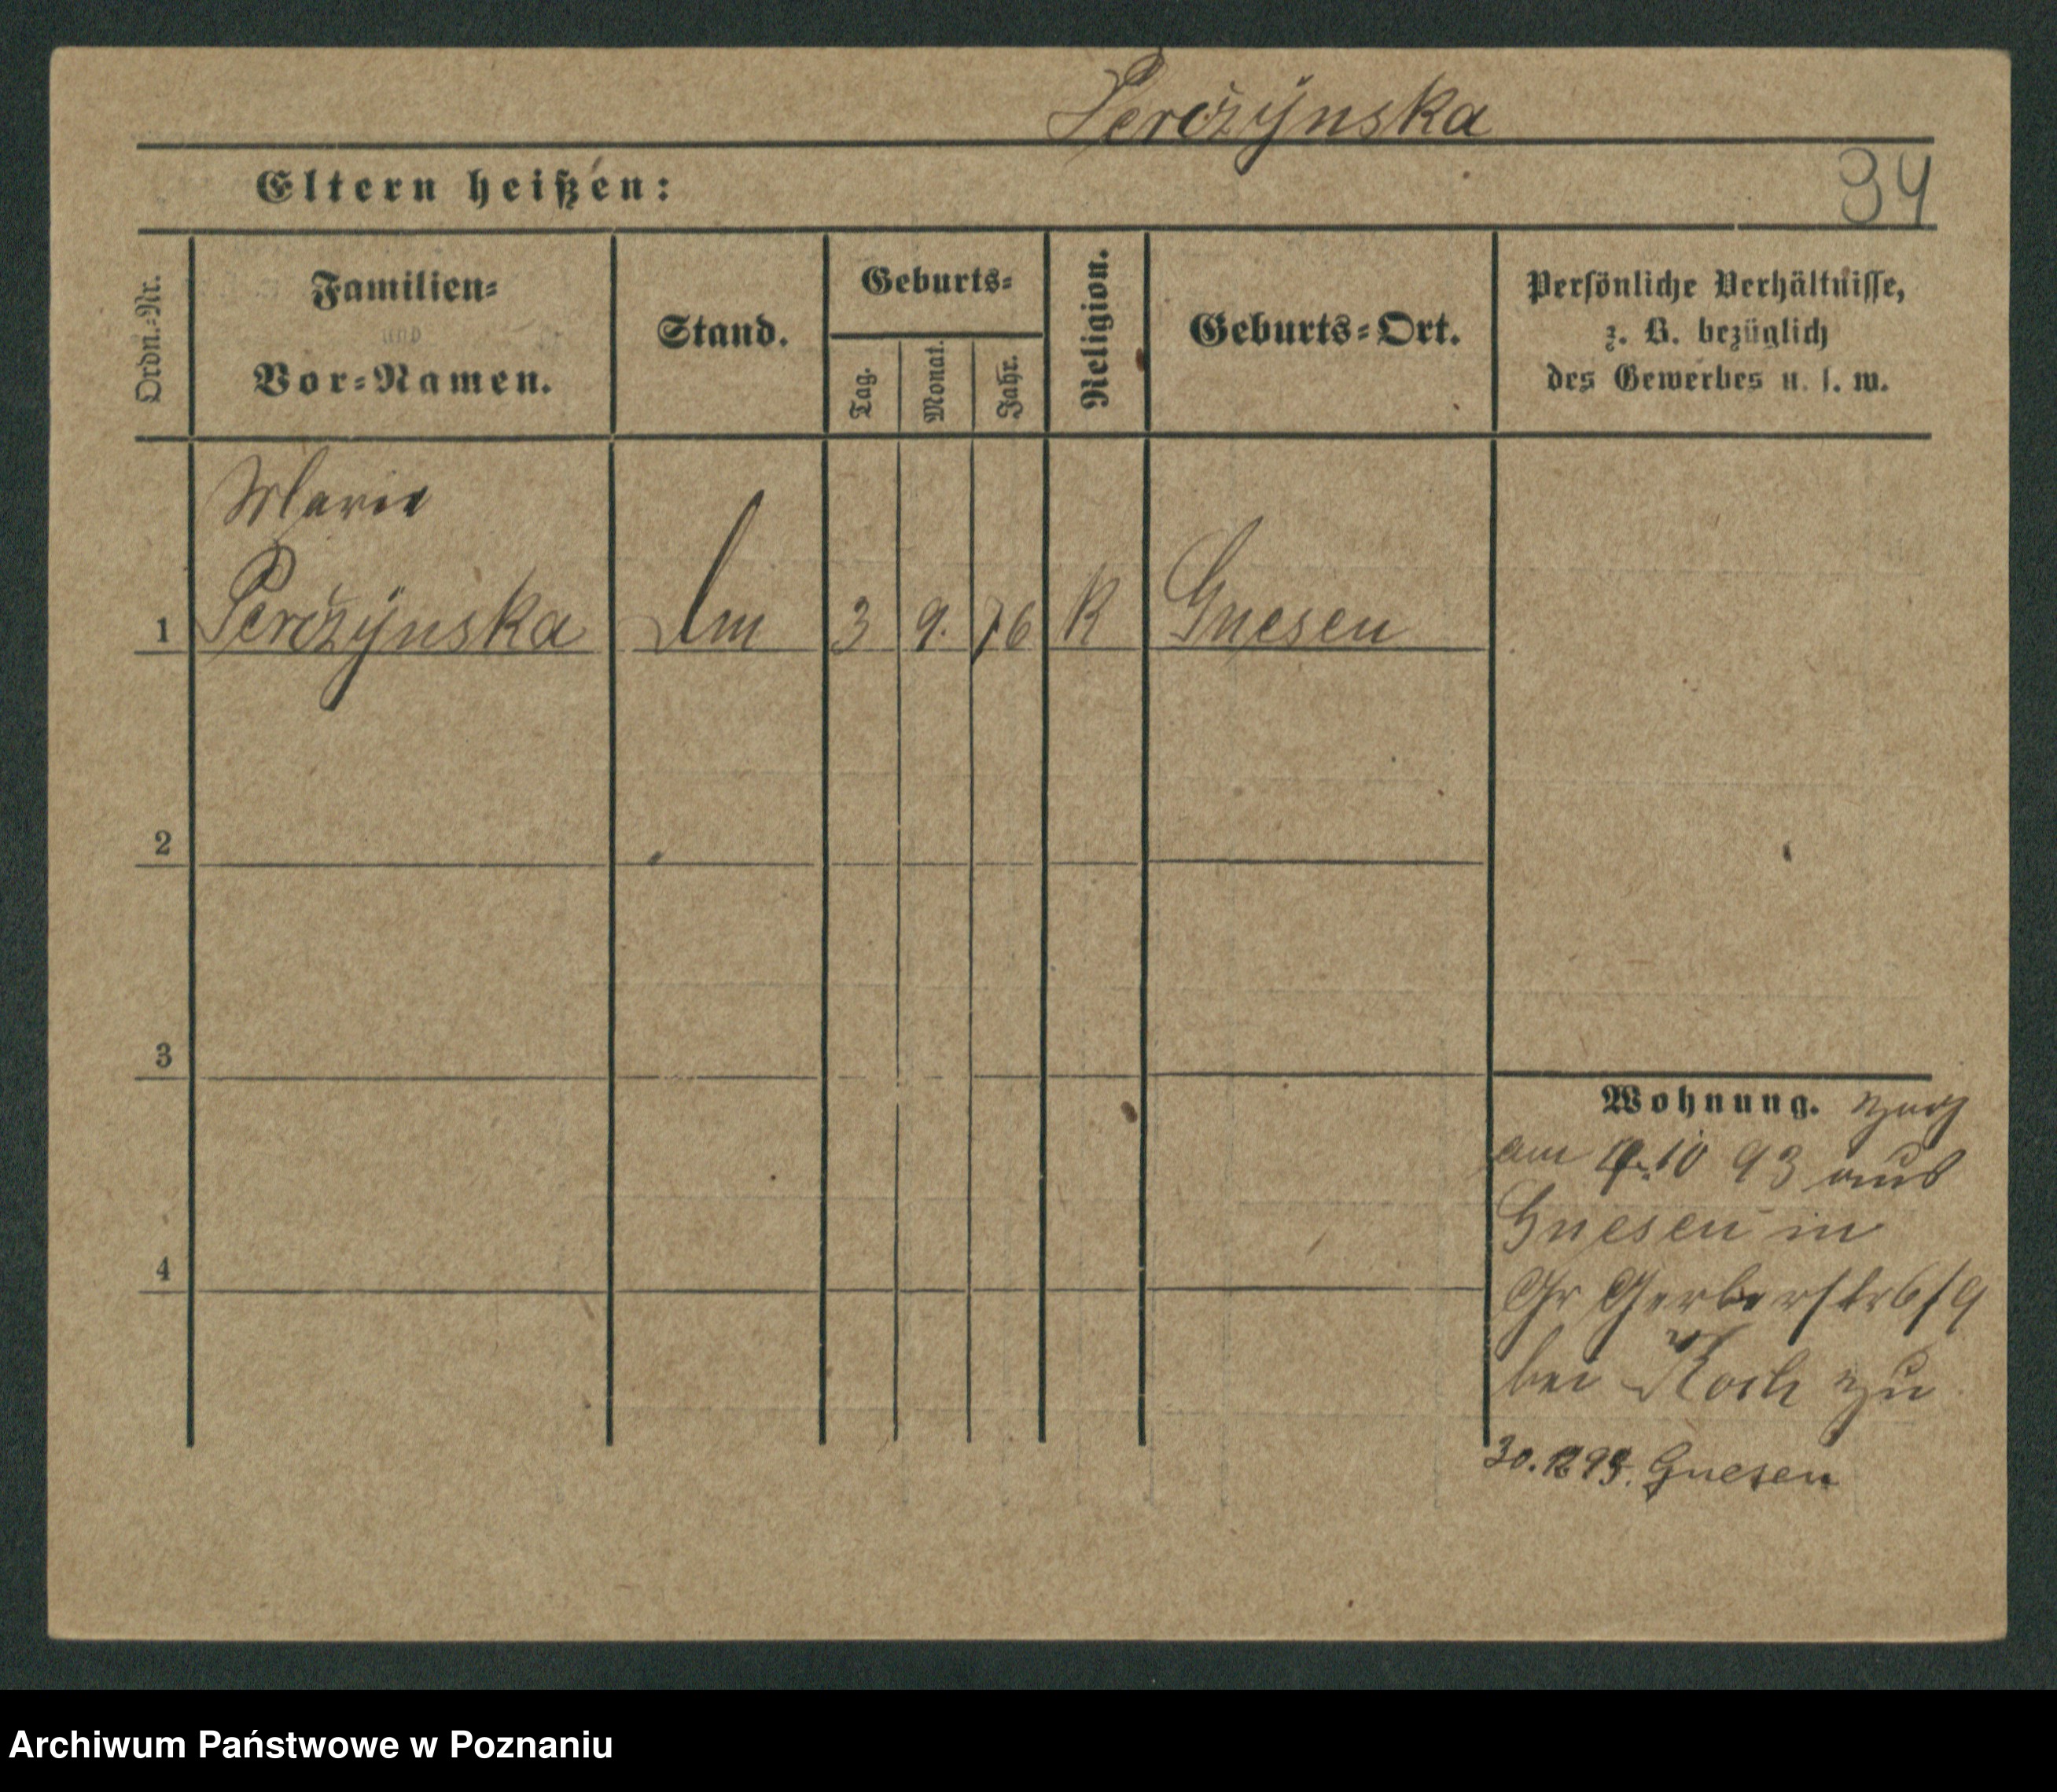 Perczÿnska
Eltern heißen:
34
Ordn.-Nr.
Familien-
und
Vor-Namen.
Stand.
Geburts-
Tag.
Monat.
Jahr.
Religion.
Geburts-Ort.
Persönliche Verhältnisse,
z. B. bezüglich
des Gewerbes u. s. w.
Marie
1 Perczÿnska 3 9. 76 K Gnesen
2
3
4
Wohnung. zog
am 10 93 aus
Gnesen in
Gr Gerberstr 6/9
bei Koch zu
30. 12 Gnesen
Archiwum Państwowe w Poznaniu